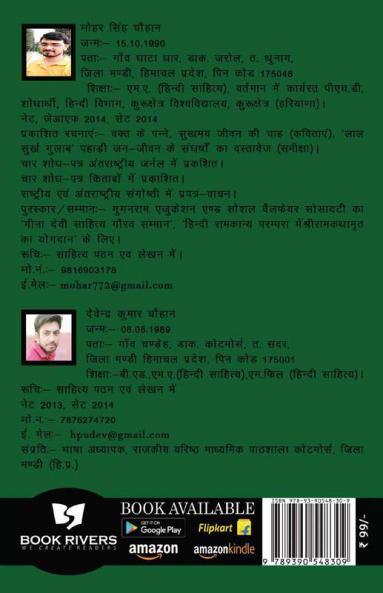 मोहर सिंह चौहान
जन्मः– 15.10.1990
पताः– गाँव घाटा धार, डाक. जरोल, त. थुनाग,
जिला मण्डी, हिमाचल प्रदेश, पिन कोड 175048
शिक्षाः– एम.ए. (हिन्दी साहित्य), वर्तमान में कार्यरत पीएच.डी.
शोधार्थी, हिन्दी विभाग, कुरूक्षेत्र विश्वविद्यालय, कुरूक्षेत्र (हरियाणा)।
नेट, जेआएफ 2014, सेट 2014
प्रकाशित रचनाएंः– वक्त के पन्ने, सुखमय जीवन की चाह (कविताएं), 'लाल
सुर्ख गुलाब' पहाड़ी जन–जीवन के संघर्षों का दस्तावेज (समीक्षा)।
चार शोध–पत्र अंतराष्ट्रीय जर्नल में प्रकशित।
चार शोध–पत्र किताबों में प्रकाशित।
राष्ट्रीय एवं अंतराष्ट्रीय संगोष्ठी में प्रपत्र–वाचन।
पुरस्कार/सम्मानः– गुगनराम एजुकेशन एण्ड सोशल वैलफेयर सोसायटी का
'गीना देवी साहित्य गौरव सम्मान', 'हिन्दी रामकाव्य परम्परा मेंश्रीरामकथामृत
का योगदान' के लिए।
रूचिः– साहित्य पठन एवं लेखन में।
मो.नं.:– 9816903178
ई.मेलः– mohar772@gmail.com
देवेन्द्र कुमार चौहान
जन्मः– 08.08.1989
पताः– गाँव चण्डेह, डाक. कोटमोर्स, त. सदर,
जिला मण्डी हिमाचल प्रदेश, पिन कोड 175001
शिक्षाः–बी.एड.,एम.ए.(हिन्दी साहित्य),एम.फिल (हिन्दी साहित्य)।
रूचिः– साहित्य पठन एवं लेखन में
नेट 2013, सेट 2014
मो.नं.:– 7876274720
ई. मेलः– hpudev@gmail.com
संप्रतिः– भाषा अध्यापक, राजकीय वरिष्ठ माध्यमिक पाठशाला कोटमोर्स, जिला
मण्डी (हि.प्र.)
BOOK RIVERS
WE CREATE READERS
BOOK AVAILABLE
GET IT ON
Google Play
Flipkart
amazon
amazonkindle
ISBN 978-93-90548-30-9
9 789390 548309
₹ 99/-